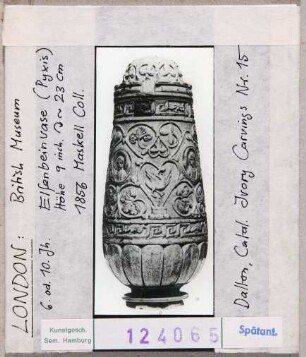 LONDON: British Museum
6. od. 10. Jh. Elfenbeinvase (Pyxis)
Höhe 9 inch. ⌀ ~ 23 cm
1856 Maskell Coll.
Dalton, Catal. Ivory Carvings Nr. 15
Kunstgesch.
Sem. Hamburg
124065
Spätant.